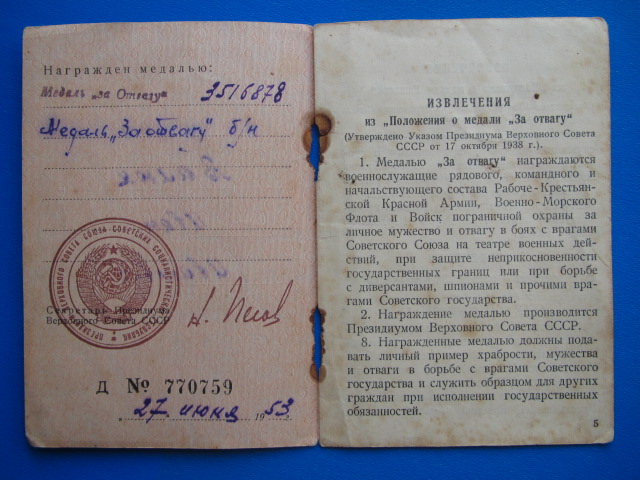 Награжден медалью:
Медаль „за Отвагу“ 3516878
Медаль „За отвагу“ б/н
Секретарь Президиума
Верховного Совета СССР
Д № 770759
27 июня 1953.
ИЗВЛЕЧЕНИЯ
из „Положения о медали „За отвагу“
(Утверждено Указом Президиума Верховного Совета
СССР от 17 октября 1938 г.).
1. Медалью „За отвагу“ награждаются
военнослужащие рядового, командного и
начальствующего состава Рабоче-Крестьян-
ской Красной Армии, Военно-Морского
Флота и Войск пограничной охраны за
личное мужество и отвагу в боях с врагами
Советского Союза на театре военных дей-
ствий, при защите неприкосновенности
государственных границ или при борьбе
с диверсантами, шпионами и прочими вра-
гами Советского государства.
2. Награждение медалью производится
Президиумом Верховного Совета СССР.
8. Награжденные медалью должны пода-
вать личный пример храбрости, мужества
и отваги в борьбе с врагами Советского
государства и служить образцом для других
граждан при исполнении государственных
обязанностей.
5